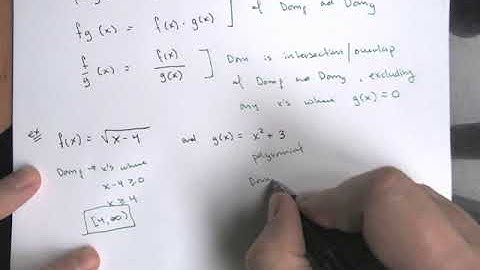 of Domf and Domg
fg (x) = f(x) · g(x)
f/g (x) = f(x)/g(x) ] Dom is intersection/overlap
of Domf and Domg, excluding
any x's where g(x)=0
ex f(x) = √x-4 and g(x) = x² + 3
Domf → x's where
x-4 ≥ 0
x ≥ 4
[4,∞)
polynomial
Dom